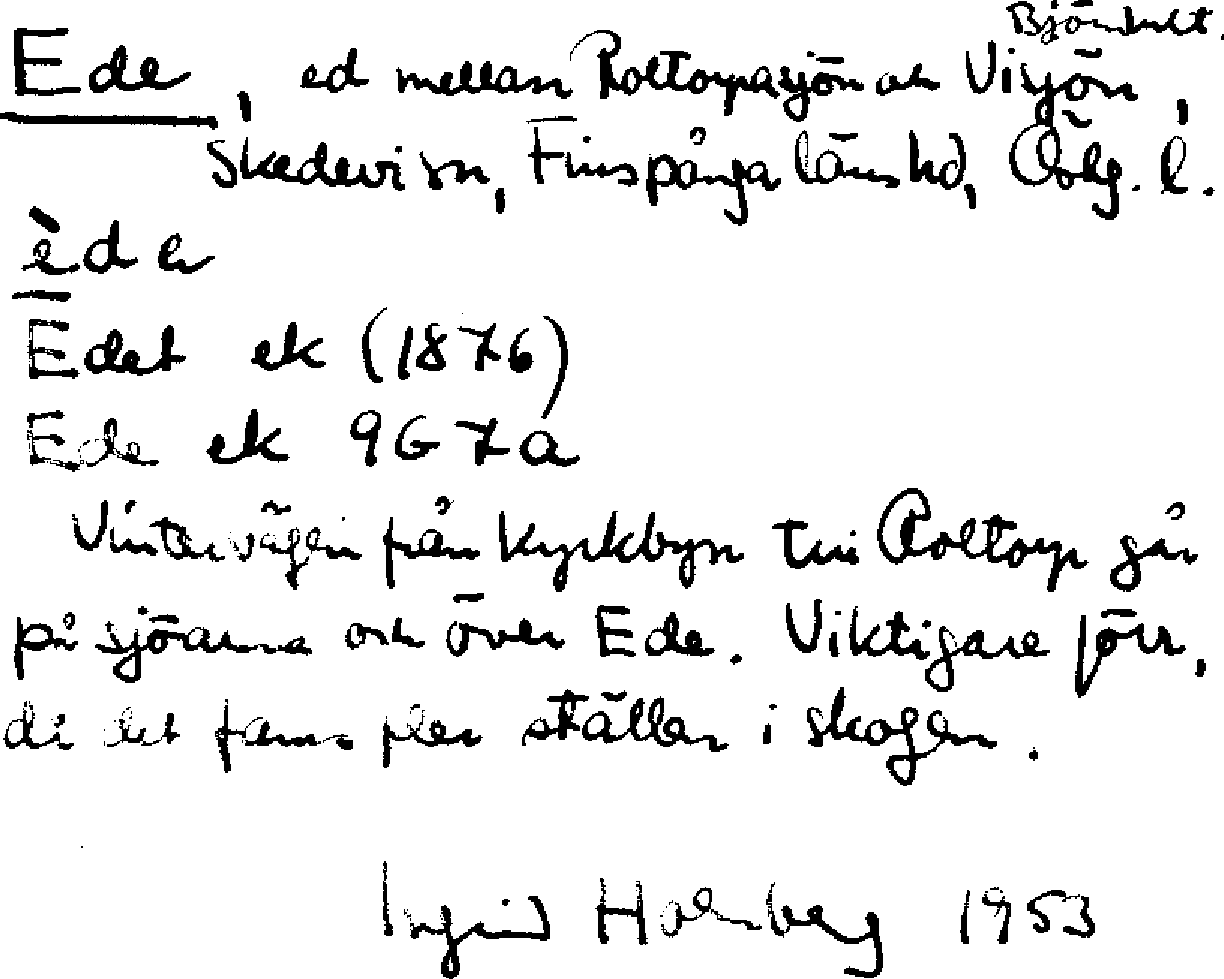 Björnhult.
Ede, ed mellan Roltorpasjön och Visjön,
Skedevi sn, Finspånga läns hd, Östg. l.
èdə
Edet ek (1876)
Ede ek 9G7a
Vintervägen från kyrkbyn till Roltorp går
på sjöarna och över Ede. Viktigare förr,
då det fanns fler ställen i skogen.
Ingrid Holmberg 1953